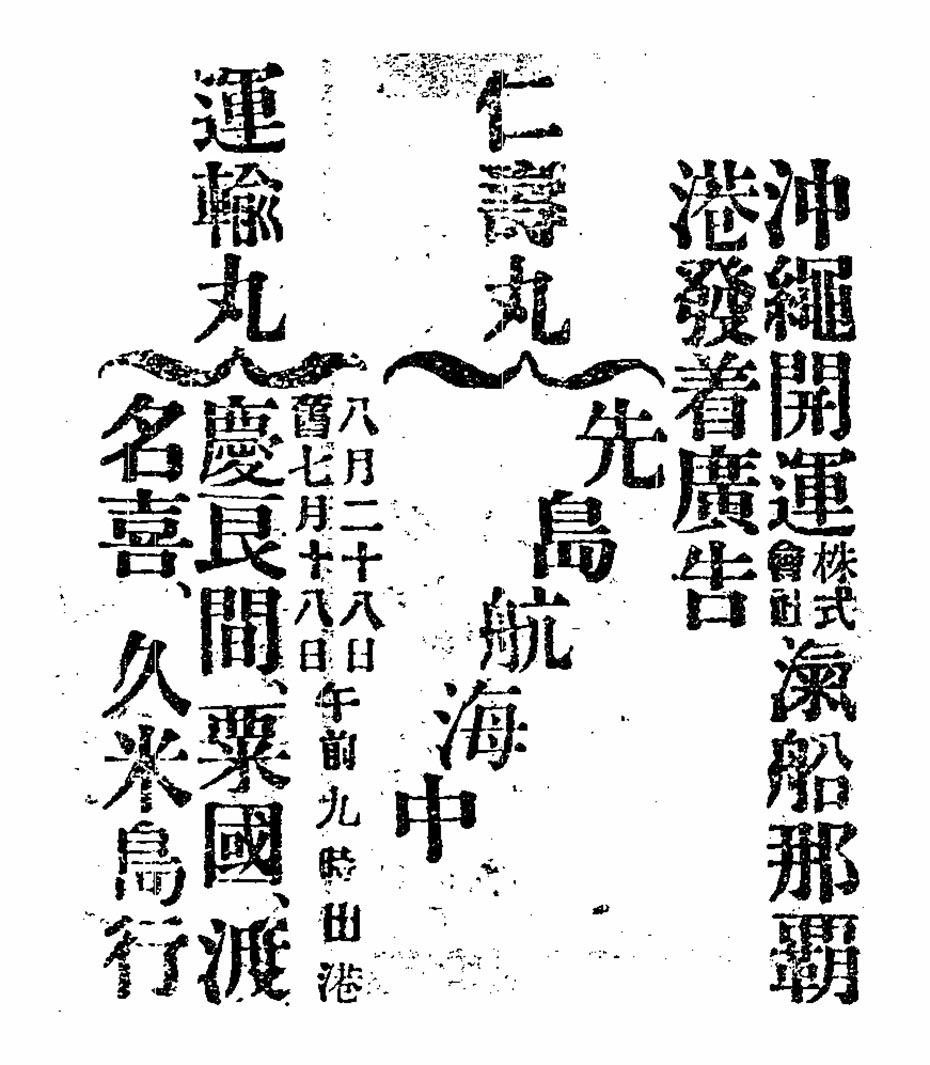 沖繩開運株式會社滊船那覇
港發着廣告
仁壽丸
先島航海中
運輸丸
八月二十八日
舊七月十八日
午前九時出港
慶良間、粟國、渡
名喜、久米島行